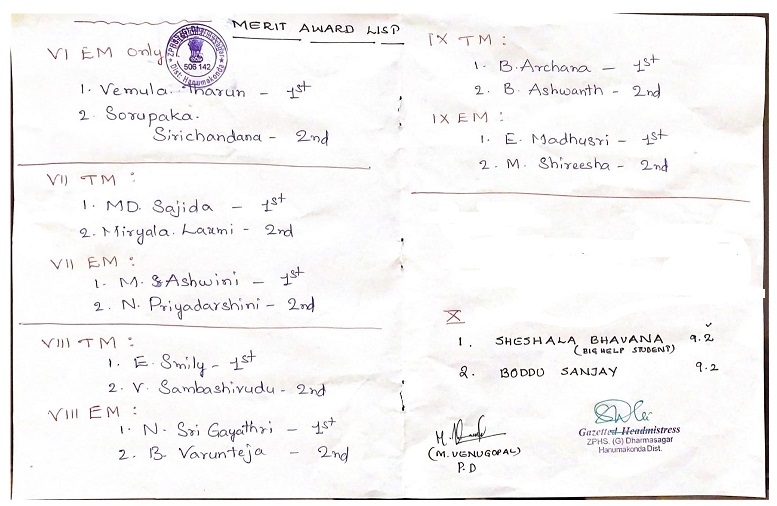 MERIT AWARD LISP
VI EM only
ZPHS (G) Dharmasagar
506 142
Dist. Hanumakonda
1. Vemula. Tharun - 1st
2. Sorupaka.
Sirichandana - 2nd
VII TM :
1. MD. Sajida - 1st
2. Miryala. Laxmi - 2nd
VII EM :
1. M. Ashwini - 1st
2. N. Priyadarshini - 2nd
VIII TM :
1. E. Smily - 1st
2. V. Sambashivudu - 2nd
VIII EM :
1. N. Sri Gayathri - 1st
2. B. Varunteja - 2nd
IX TM :
1. B. Archana - 1st
2. B. Ashwanth - 2nd
IX EM :
1. E. Madhusri - 1st
2. M. Shireesha - 2nd
X
1. SHESHALA BHAVANA 9.2
(BIG HELP STUDENT)
2. BODDU SANJAY 9.2
(M. VENUGOPAL)
P.D
Gazetted Headmistress
ZPHS. (G) Dharmasagar
Hanumakonda Dist.